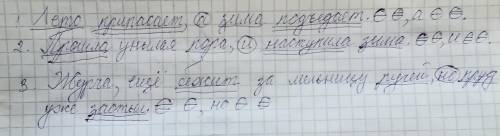 1. Лето припасает, а зима подъедает. ⊖⊖, а ⊖⊖.
2. Прошла унылая пора, и наступила зима. ⊖⊖, и ⊖⊖.
3 Журча, ещё бежит за мельницу ручей, но пруд
уже застыл. ⊖ ⊖, но ⊖ ⊖